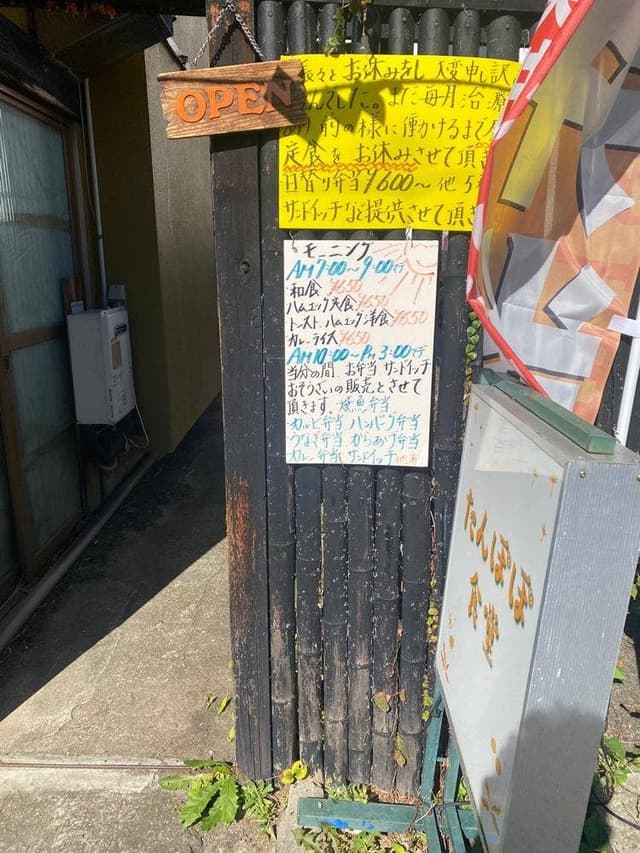 OPEN
々とお休みをし 大変申し訳
んでした。また毎月治療
あり前の様に働けるまで
定食をお休みさせて頂き
日替り弁当¥600〜他
サンドイッチなど提供させて頂き
モーニング
AM7:00〜9:00まで
和食 ¥650
ハムエッグ定食¥650
トースト、ハムエッグ洋食¥650
カレーライス¥650
AM10:00〜PM3:00まで
当分の間、お弁当 サンドイッチ
おそうざいの販売とさせて
頂きます。焼魚弁当
カルビ弁当 ハンバーグ弁当
うなぎ弁当 からあげ弁当
カレー弁当 サンドイッチ 他あり
たんぽぽ
食堂